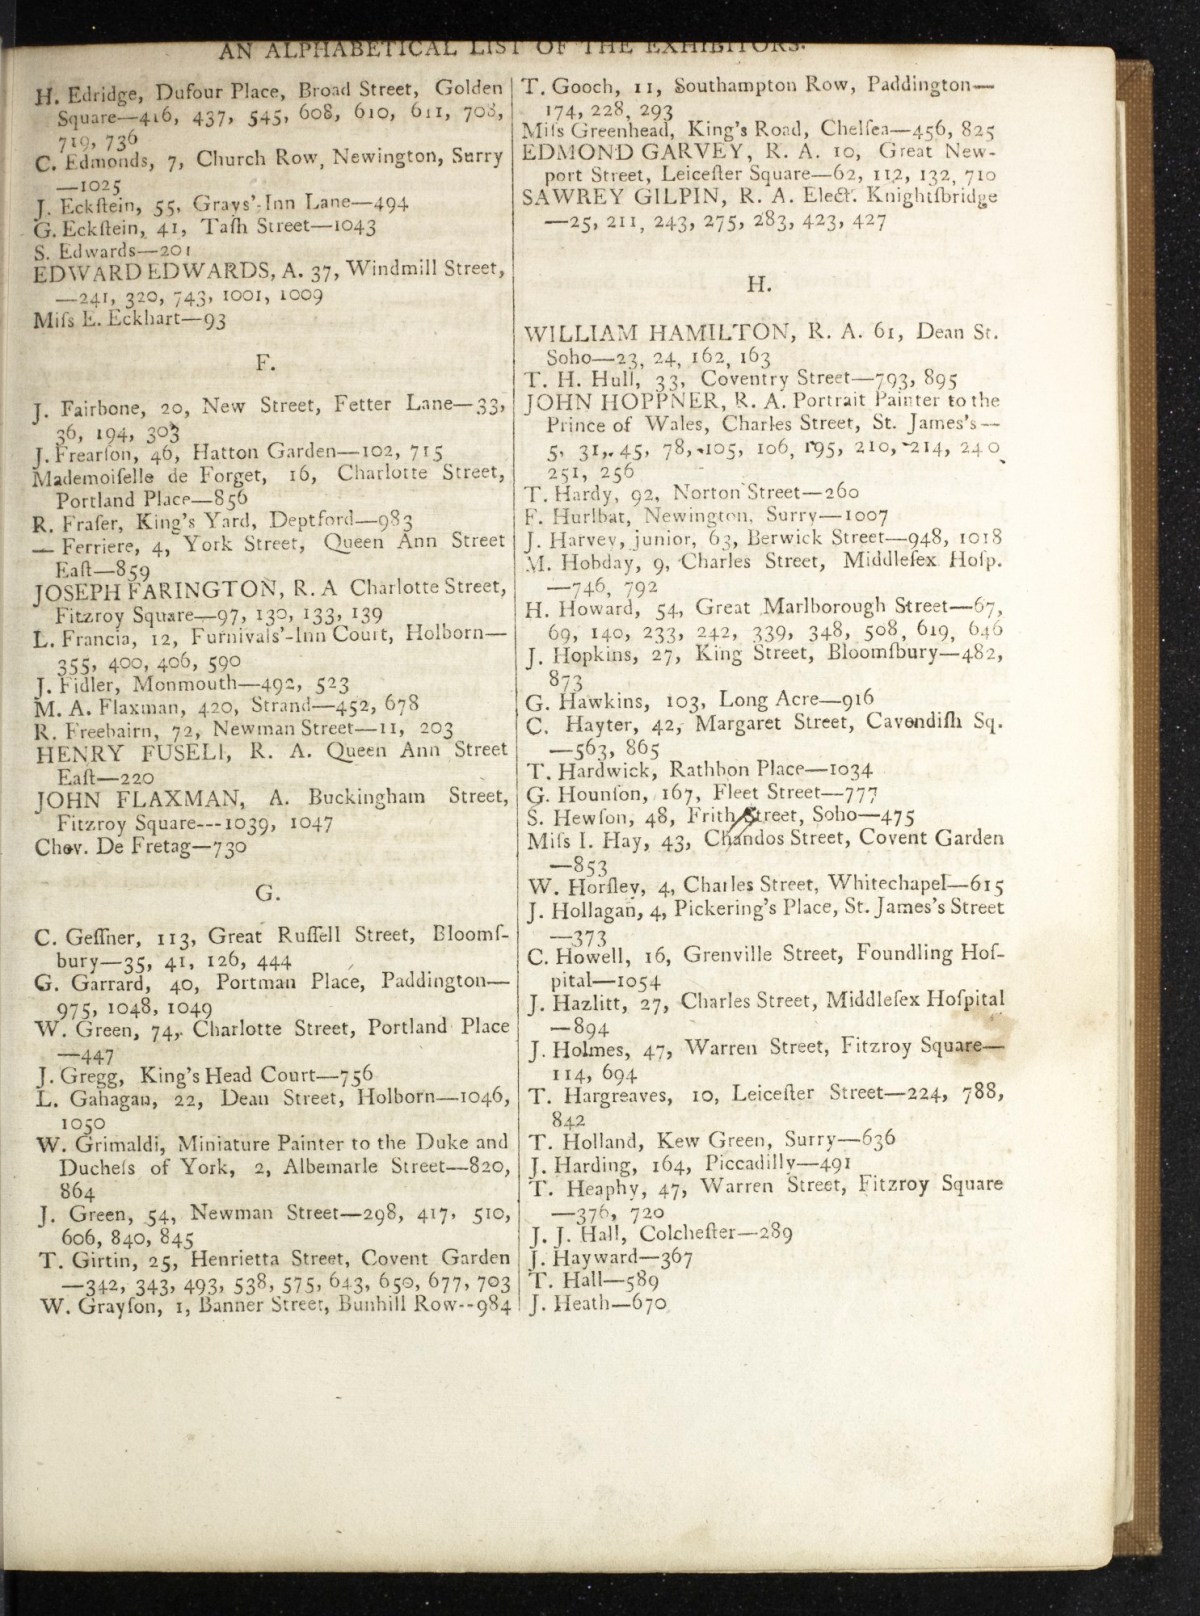 AN ALPHABETICAL LIST OF THE EXHIBITORS.
H. Edridge, Dufour Place, Broad Street, Golden
Square—416, 437, 545, 608, 610, 611, 708,
719, 736
C. Edmonds, 7, Church Row, Newington, Surry
—1025
J. Eckſtein, 55, Grays'-Inn Lane—494
G. Eckſtein, 41, Taſh Street—1043
S. Edwards—201
EDWARD EDWARDS, A. 37, Windmill Street,
—241, 320, 743, 1001, 1009
Miſs E. Eckhart—93
F.
J. Fairbone, 20, New Street, Fetter Lane—33,
36, 194, 303
J. Frearſon, 46, Hatton Garden—102, 715
Mademoiſelle de Forget, 16, Charlotte Street,
Portland Place—856
R. Fraſer, King's Yard, Deptford—983
— Ferriere, 4, York Street, Queen Ann Street
Eaſt—859
JOSEPH FARINGTON, R. A Charlotte Street,
Fitzroy Square—97, 130, 133, 139
L. Francia, 12, Furnivals'-Inn Court, Holborn—
355, 400, 406, 590
J. Fidler, Monmouth—492, 523
M. A. Flaxman, 420, Strand—452, 678
R. Freebairn, 72, Newman Street—11, 203
HENRY FUSELI, R. A. Queen Ann Street
Eaſt—220
JOHN FLAXMAN, A. Buckingham Street,
Fitzroy Square---1039, 1047
Chev. De Fretag—730
G.
C. Geſſner, 113, Great Ruſſell Street, Bloomſ-
bury—35, 41, 126, 444
G. Garrard, 40, Portman Place, Paddington—
975, 1048, 1049
W. Green, 74, Charlotte Street, Portland Place
—447
J. Gregg, King's Head Court—756
L. Gahagan, 22, Dean Street, Holborn—1046,
1050
W. Grimaldi, Miniature Painter to the Duke and
Ducheſs of York, 2, Albemarle Street—820,
864
J. Green, 54, Newman Street—298, 417, 510,
606, 840, 845
T. Girtin, 25, Henrietta Street, Covent Garden
—342, 343, 493, 538, 575, 643, 650, 677, 703
W. Grayſon, 1, Banner Street, Bunhill Row--984
T. Gooch, 11, Southampton Row, Paddington—
174, 228, 293
Miſs Greenhead, King's Road, Chelſea—456, 825
EDMOND GARVEY, R. A. 10, Great New-
port Street, Leiceſter Square—62, 112, 132, 710
SAWREY GILPIN, R. A. Elect. Knightſbridge
—25, 211, 243, 275, 283, 423, 427
H.
WILLIAM HAMILTON, R. A. 61, Dean St.
Soho—23, 24, 162, 163
T. H. Hull, 33, Coventry Street—793, 895
JOHN HOPPNER, R. A. Portrait Painter to the
Prince of Wales, Charles Street, St. James's—
5, 31, 45, 78, 105, 106, 195, 210, 214, 240
251, 256
T. Hardy, 92, Norton Street—260
F. Hurlbat, Newington, Surry—1007
J. Harvey, junior, 63, Berwick Street—948, 1018
M. Hobday, 9, Charles Street, Middleſex Hoſp.
—746, 792
H. Howard, 54, Great Marlborough Street—67,
69, 140, 233, 242, 339, 348, 508, 619, 646
J. Hopkins, 27, King Street, Bloomſbury—482,
873
G. Hawkins, 103, Long Acre—916
C. Hayter, 42, Margaret Street, Cavendiſh Sq.
—563, 865
T. Hardwick, Rathbon Place—1034
G. Hounſon, 167, Fleet Street—777
S. Hewſon, 48, Frith Street, Soho—475
Miſs I. Hay, 43, Chandos Street, Covent Garden
—853
W. Horſley, 4, Charles Street, Whitechapel—615
J. Hollagan, 4, Pickering's Place, St. James's Street
—373
C. Howell, 16, Grenville Street, Foundling Hoſ-
pital—1054
J. Hazlitt, 27, Charles Street, Middleſex Hoſpital
—894
J. Holmes, 47, Warren Street, Fitzroy Square—
114, 694
T. Hargreaves, 10, Leiceſter Street—224, 788,
842
T. Holland, Kew Green, Surry—636
J. Harding, 164, Piccadilly—491
T. Heaphy, 47, Warren Street, Fitzroy Square
—376, 720
J. J. Hall, Colcheſter—289
J. Hayward—367
T. Hall—589
J. Heath—670